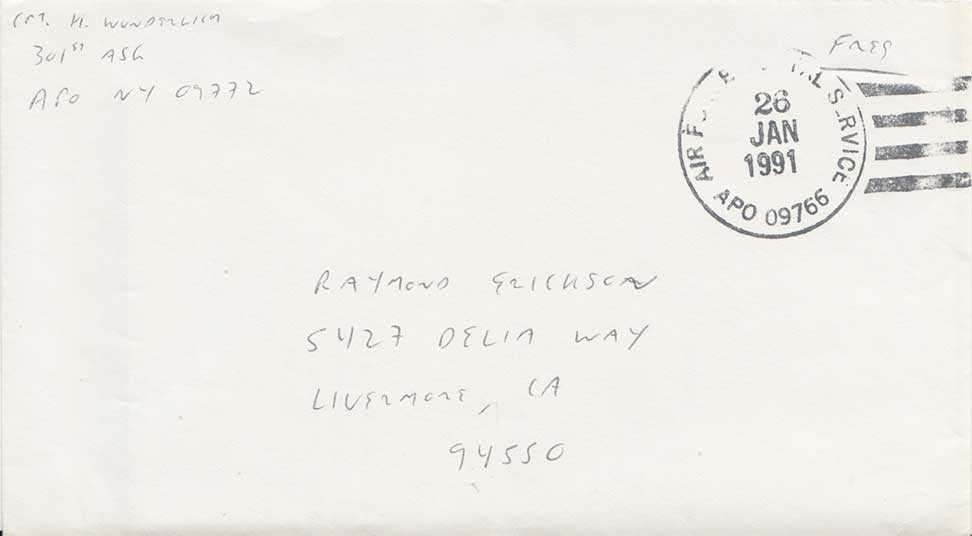 CPT. H. WUNDERLICH
301ST ASG
APO NY 09772
FREE
AIR FORCE POSTAL SERVICE
26
JAN
1991
APO 09766
RAYMOND ERICKSON
5427 DELIA WAY
LIVERMORE, CA
94550